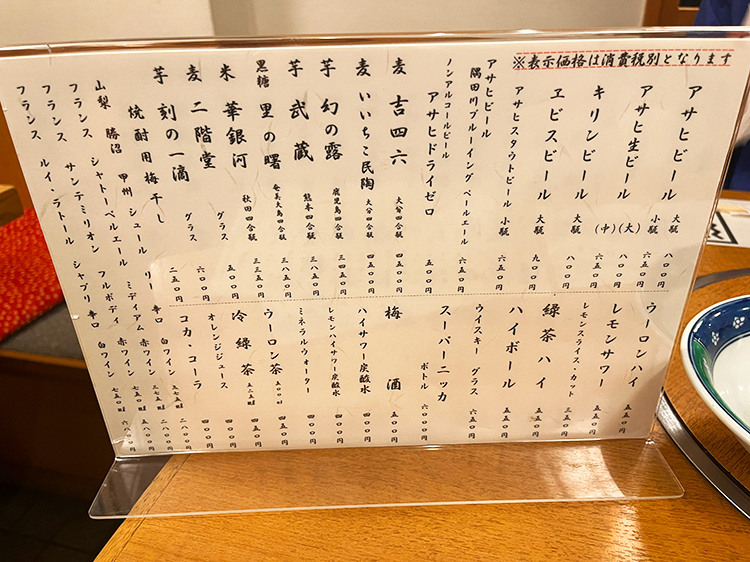 ※表示価格は消費税別となります
アサヒビール 大瓶 八〇〇円
小瓶 六五〇円
アサヒ生ビール (大) 八〇〇円
(中) 六五〇円
キリンビール 大瓶 八〇〇円
ヱビスビール 大瓶 九〇〇円
アサヒスタウトビール 小瓶 六五〇円
アサヒビール
隅田川ブルーイング ペールエール 六五〇円
ノンアルコールビール
アサヒドライゼロ 五〇〇円
麦 吉四六 大分四合瓶 四五〇〇円
麦 いいちこ民陶 大分四合瓶 四五〇〇円
芋 幻の露 鹿児島四合瓶 三四〇〇円
芋 武蔵 熊本四合瓶 三八五〇円
黒糖 里の曙 奄美大島四合瓶 三八五〇円
米 華銀河 秋田四合瓶 三三五〇円
麦 二階堂 グラス 五〇〇円
芋 刻の一滴 グラス 六〇〇円
焼酎用梅干し 二五〇円
ウーロンハイ 五五〇円
レモンサワー 五五〇円
レモンスライス・カット 三五〇円
緑茶ハイ 五五〇円
ハイボール 五五〇円
ウイスキー グラス 六五〇円
スーパーニッカ ボトル 六五〇〇円
梅酒 五五〇円
ハイサワー炭酸水 四〇〇円
レモンハイサワー炭酸水 四〇〇円
ミネラルウォーター 四〇〇円
ウーロン茶 四〇〇円
冷緑茶 五二五㎖ 四〇〇円
オレンジジュース 四〇〇円
コカ・コーラ 四〇〇円
山梨 勝沼 甲州 シュール リー 辛口 白ワイン 三七五㎖ 二八〇〇円
フランス シャトーペルエール ミディアム 赤ワイン 三七五㎖ 二八〇〇円
フランス サンテミリオン フルボディ 赤ワイン 七五〇㎖ 五八〇〇円
フランス ルイ・ラトール シャブリ 辛口 白ワイン 七五〇㎖